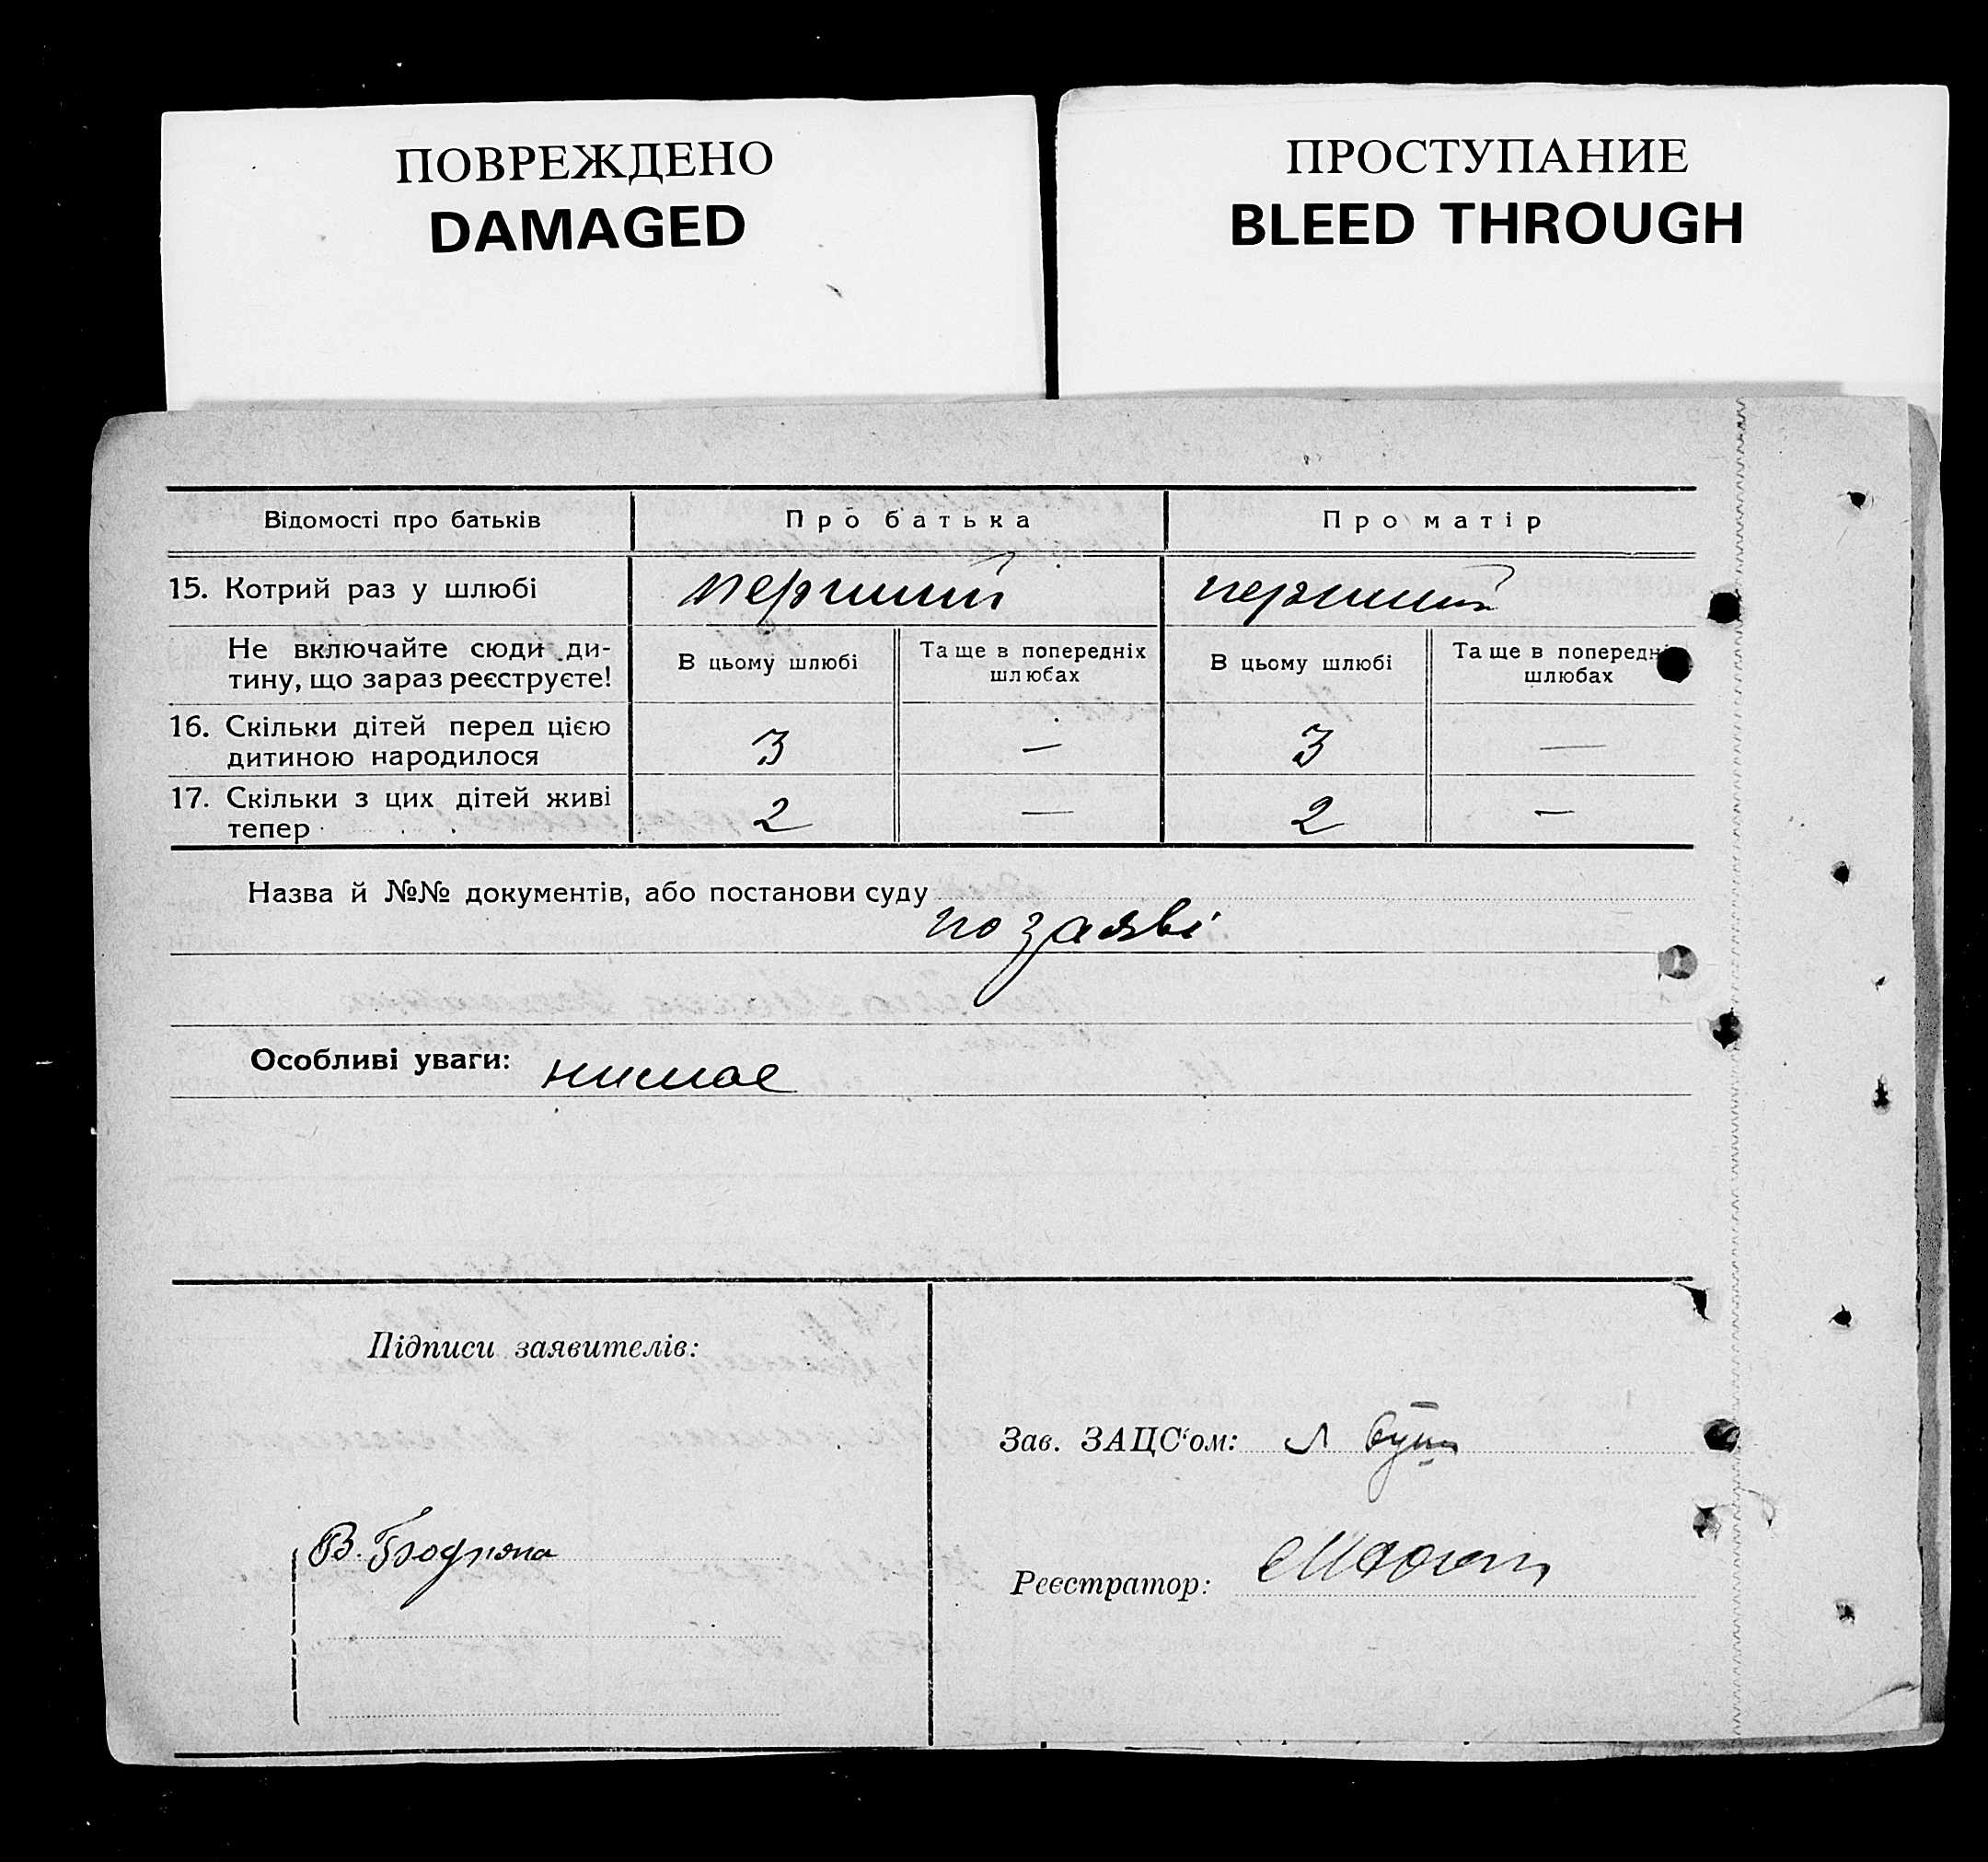 ПОВРЕЖДЕНО
DAMAGED
ПРОСТУПАНИЕ
BLEED THROUGH
Відомості про батьків
Про батька
Про матір
15. Котрий раз у шлюбі
перший
перший
Не включайте сюди ди-
тину, що зараз реєструєте!
В цьому шлюбі
Та ще в попередніх
шлюбах
В цьому шлюбі
Та ще в попередні
шлюбах
16. Скільки дітей перед цією
дитиною народилося
3
—
3
—
17. Скільки з цих дітей живі
тепер
2
—
2
—
Назва й №№ документів, або постанови суду
по заяві
Особливі уваги: нимае
Підписи заявителів:
Зав. ЗАЦС'ом:
В.
Реєстратор: